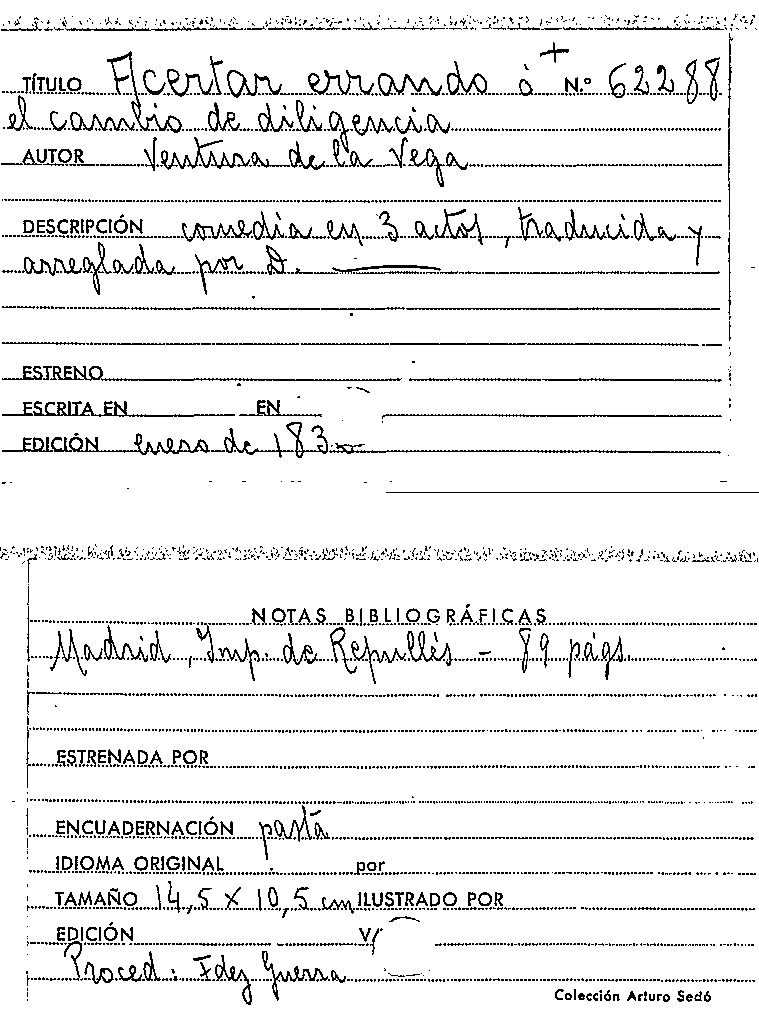 TÍTULO Acertar errando ó + N.º 62288
el cambio de diligencia
AUTOR Ventura de la Vega
DESCRIPCIÓN comedia en 3 actos, traducida y
arreglada por D. ———
ESTRENO
ESCRITA EN EN
EDICIÓN enero de 183
NOTAS BIBLIOGRÁFICAS
Madrid, Imp. de Repullés - 89 págs.
ESTRENADA POR
ENCUADERNACIÓN pasta
IDIOMA ORIGINAL por
TAMAÑO 14,5 X 10,5 cm ILUSTRADO POR
EDICIÓN V/
Proced: Fdez Guerra
Colección Arturo Sedó